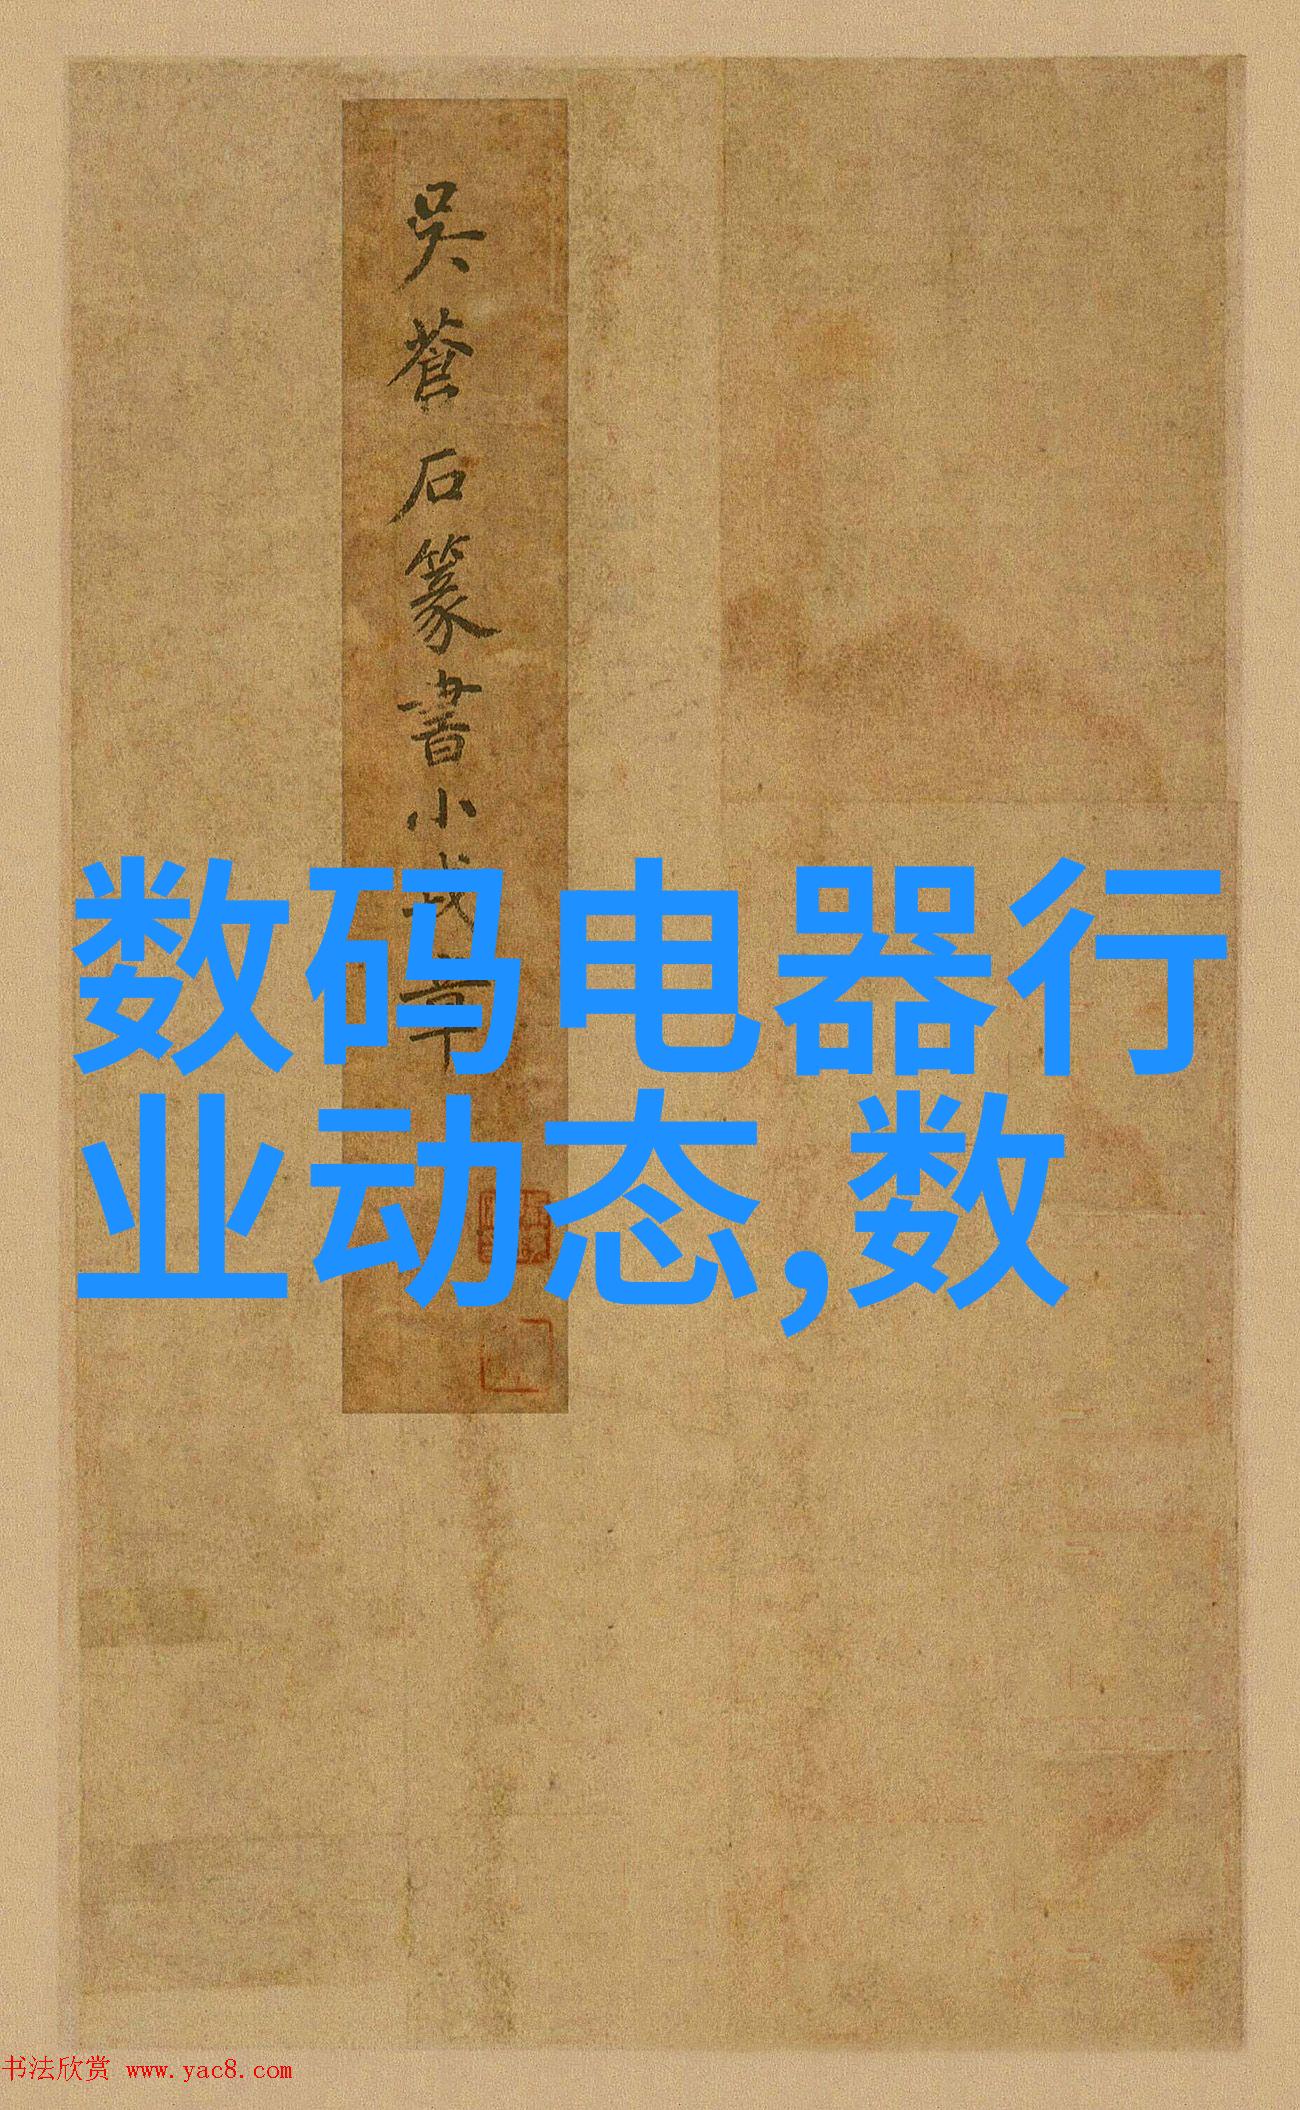 吳蒼石篆書小戎章
数码电器行
业动态,数
书法欣赏 www.yac8.com